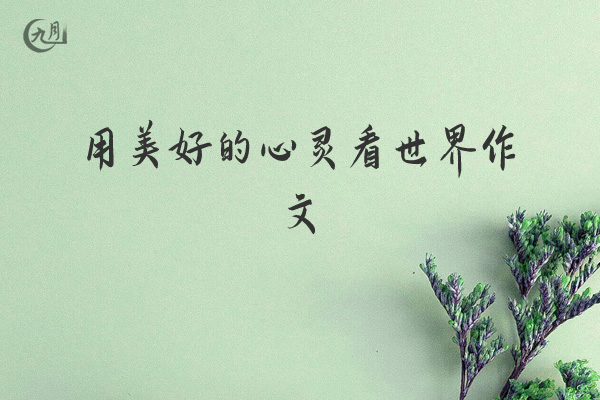 九月
用美好的心灵看世界作
文